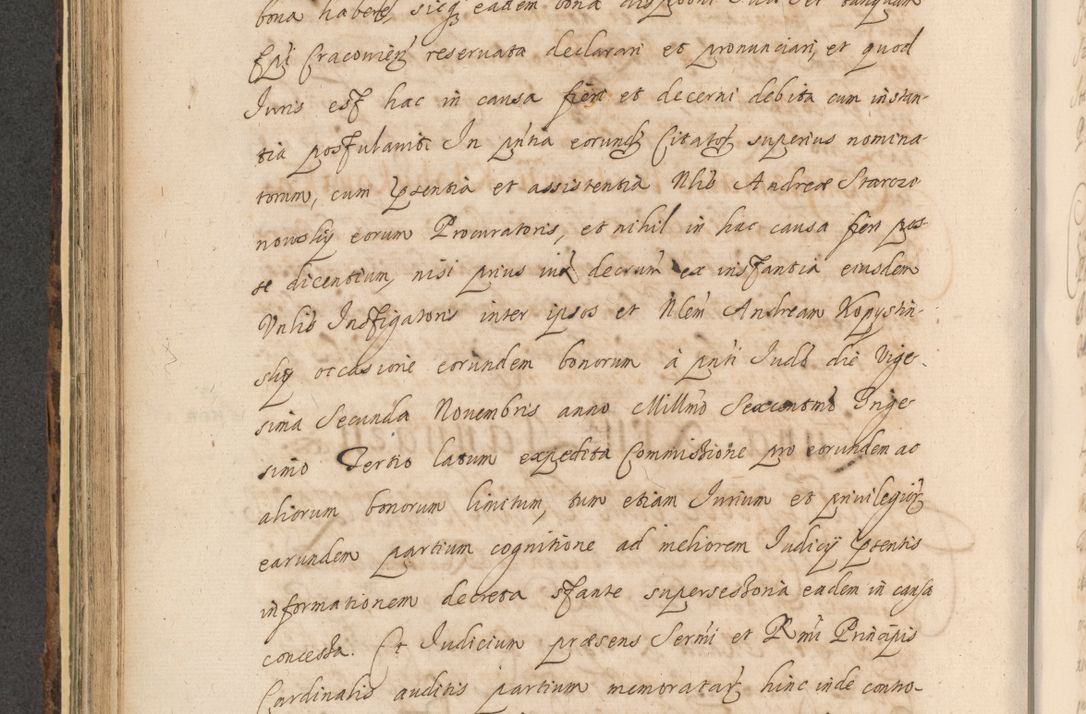 bona habere sicq eadem bona disponi
Epi Cracovien reservata declarari et pronunciari, et quod
Iuris est hac in causa fieri et decerni debita cum instan-
tia postulavit. In pntia eorund Citator superius nomina-
torum, cum pſentia et assistentia Nlis Andreæ Starozo
nowsky eorum Procuratoris, et nihil in hac causa fieri pos-
se dicentium, nisi prius decrum ex instantia eiusdem
Vnlis Instigatoris inter ipsos et Nlem Andream Kopystin-
sky occasione eorundem bonorum à pnti Iudo die Vige-
sima Secunda Novembris anno Millmo Sexcentmo Trige
simo Tertio latum expedita Commissione pro eorundem ac
aliorum bonorum limitum, tum etiam Iurium et privilegior
earundem partium cognitione ad meliorem Iudicij pſentis
informationem decreta stante supersessoria eadem in causa
concessa. Et Iudicium præsens Sermi et Rmi Principis
Cardinalis auditis partium memoratar hinc inde contro-